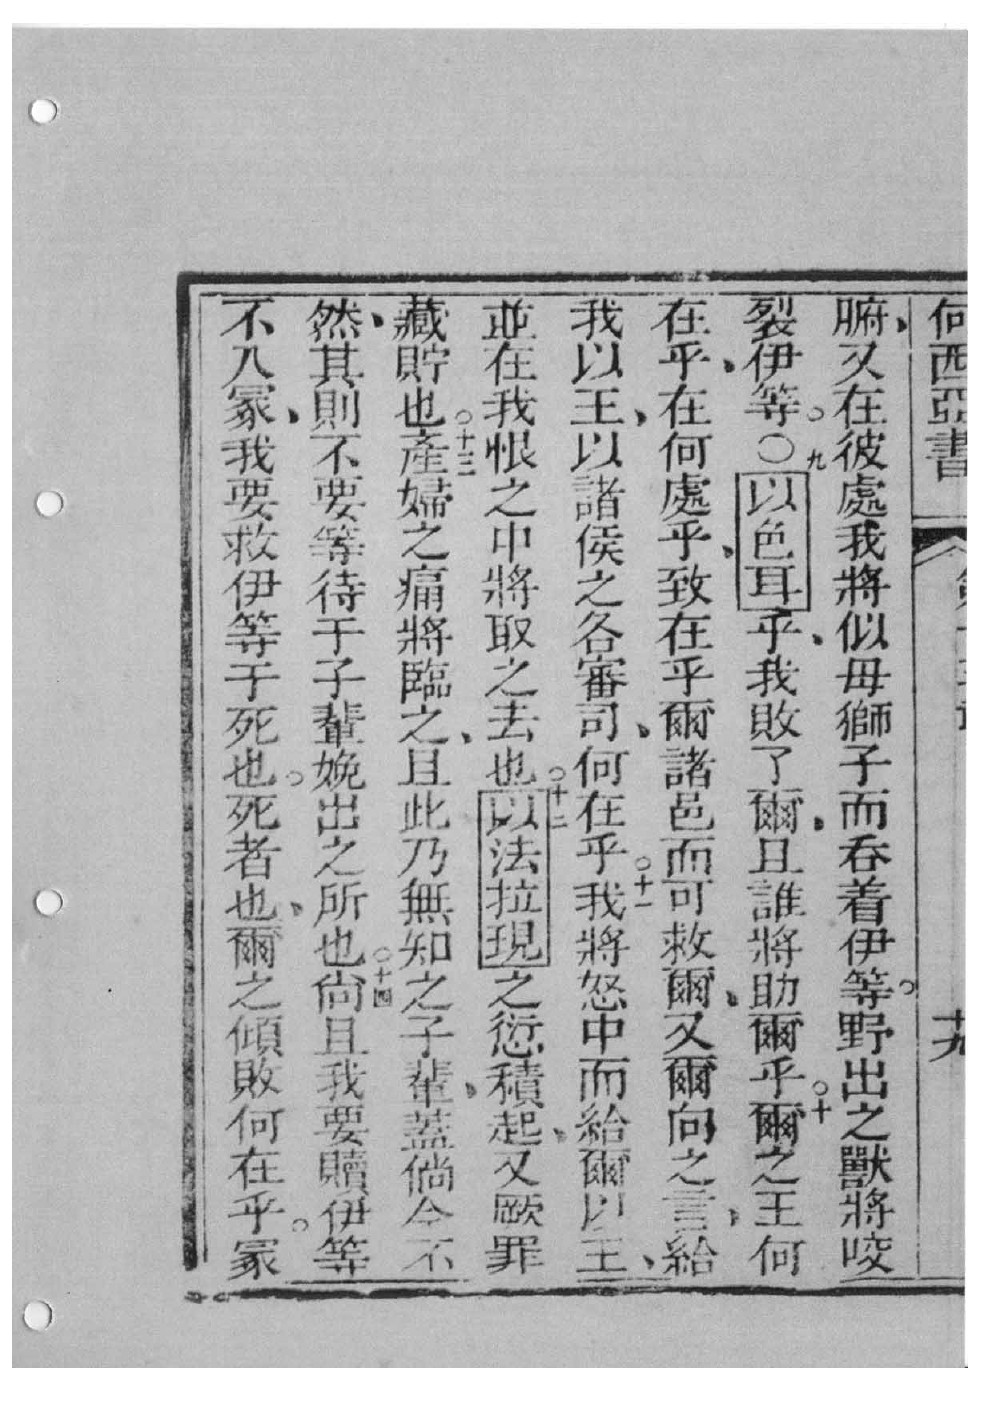 何西亞書 十九
腑、又在彼處我將似母獅子而吞着伊等。野出之獸將咬
裂伊等。〇九以色耳乎、我敗了爾、且誰將助爾乎。十爾之王何
在乎、在何處乎、致在乎爾諸邑而可救爾、又爾向之言、給
我以王、以諸侯之各審司、何在乎。十一我將怒中而給爾以王、
並在我恨之中將取之去也。十二以法拉現之愆積起、又厥罪
藏貯也。十三產婦之痛將臨之、且此乃無知之子輩、蓋倘今不
然、其則不要等待于子輩娩出之所也。十四尙且我要贖伊等
不入冢、我要救伊等于死也。死者也、爾之傾敗何在乎。冢